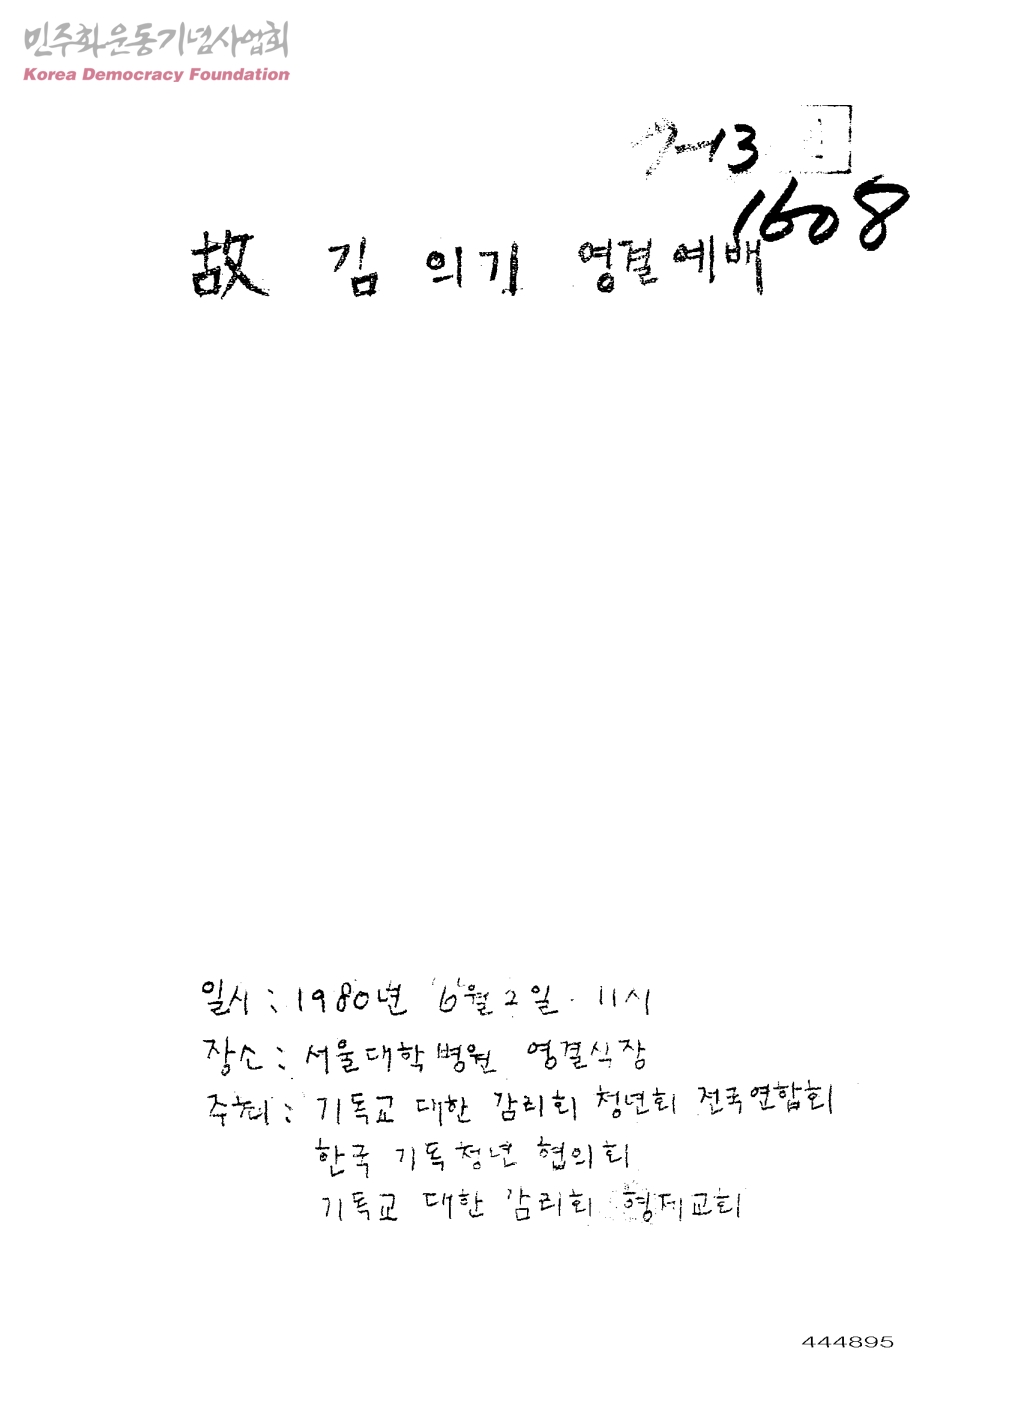 민주화운동기념사업회
Korea Democracy Foundation
7-13
1608
故 김 의기 영결예배
일시 : 1980년 6월 2일 11시
장소 : 서울대학병원 영결식장
주최 : 기독교 대한 감리회 청년회 전국연합회
한국 기독청년 협의회
기독교 대한 감리회 형제교회
444895